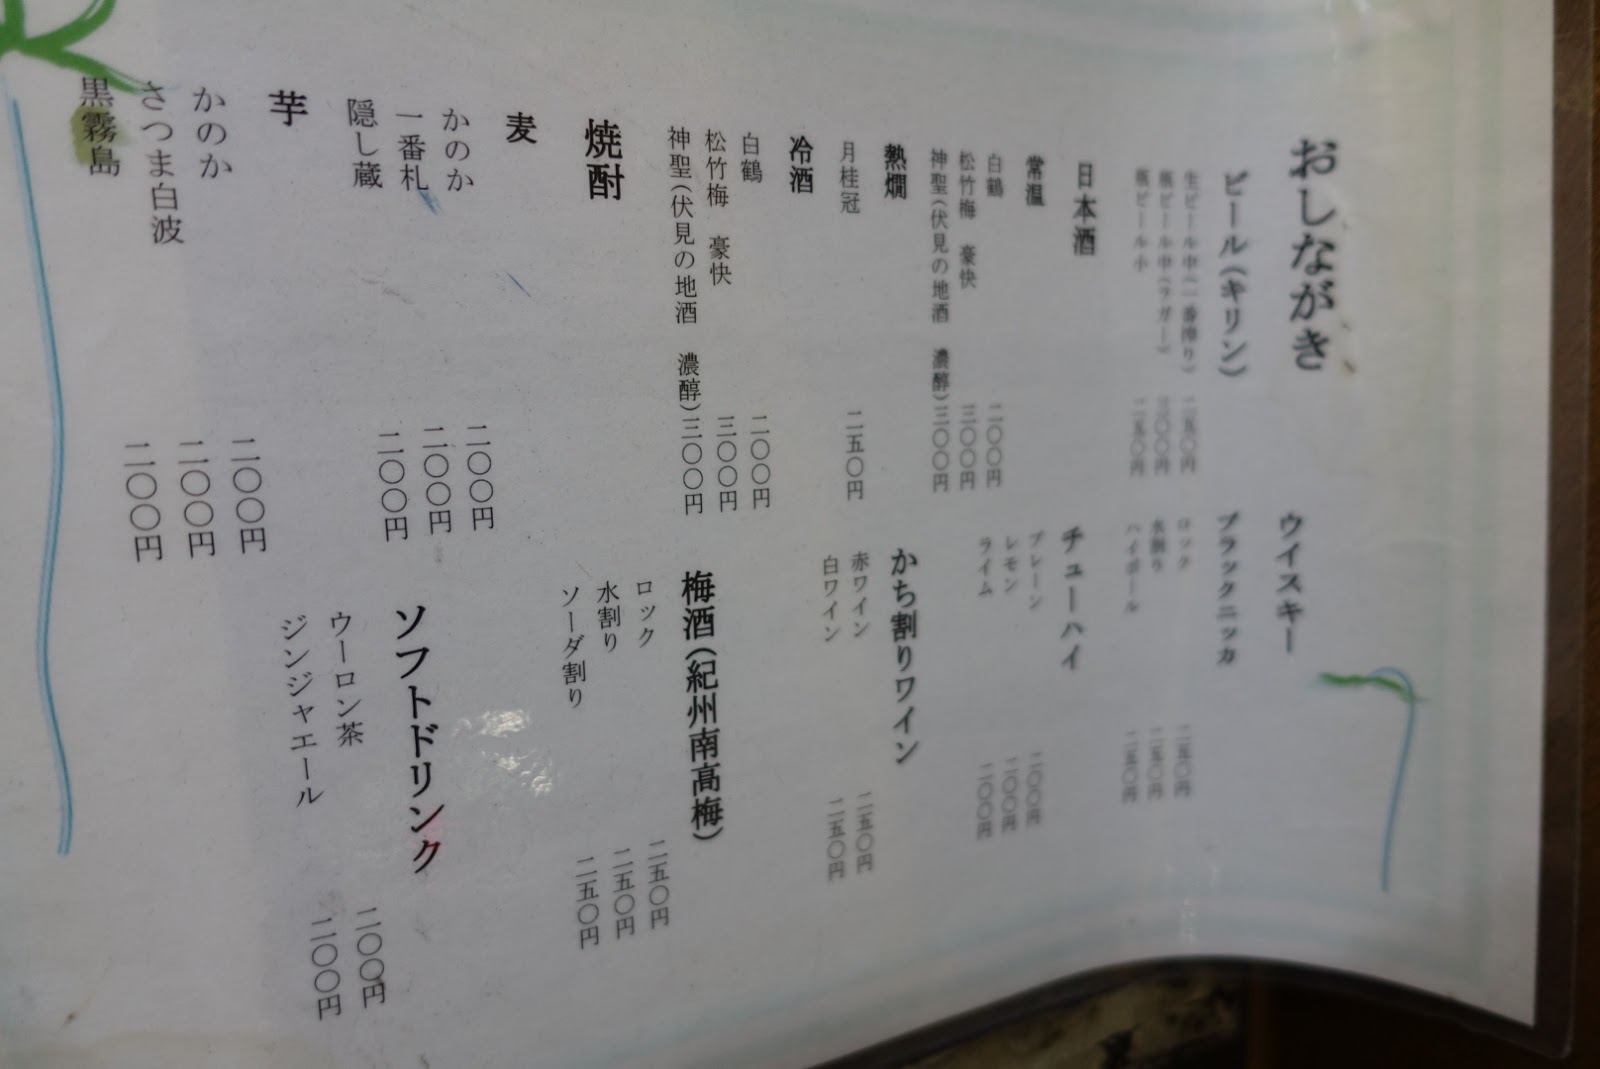 おしながき
ビール(キリン)
生ビール中(一番搾り) 二五〇円
瓶ビール中(ラガー) 三〇〇円
瓶ビール小 二五〇円
日本酒
常温
白鶴 二〇〇円
松竹梅 豪快 三〇〇円
神聖(伏見の地酒 濃醇)三〇〇円
熱燗
月桂冠 二五〇円
冷酒
白鶴 二〇〇円
松竹梅 豪快 三〇〇円
神聖(伏見の地酒 濃醇)三〇〇円
焼酎
麦
かのか 二〇〇円
一番札 二〇〇円
隠し蔵 二〇〇円
芋
かのか 二〇〇円
さつま白波 二〇〇円
黒霧島 二〇〇円
ウイスキー
ブラックニッカ
ロック 二五〇円
水割り 二五〇円
ハイボール 二五〇円
チューハイ
プレーン 二〇〇円
レモン 二〇〇円
ライム 二〇〇円
かち割りワイン
赤ワイン 二五〇円
白ワイン 二五〇円
梅酒(紀州南高梅)
ロック 二五〇円
水割り 二五〇円
ソーダ割り 二五〇円
ソフトドリンク
ウーロン茶 二〇〇円
ジンジャエール 二〇〇円